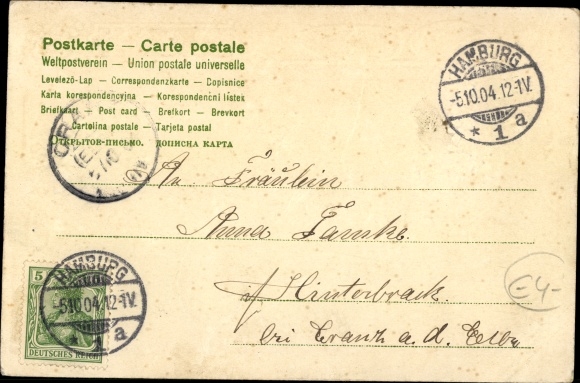 Postkarte — Carte postale
Weltpostverein — Union postale universelle
Levelező-Lap — Correspondenzkarte — Dopisnice
Karta korespondencyjna — Korespondenční lístek
Briefkaart — Post card — Brefkort — Brevkort
Cartolina postale — Tarjeta postal
Открытое письмо. дописна карта
HAMBURG
-5.10.04.12-1V.
* 1 a
An Fräulein
Anna
Hinterbrack
bei Cranz a. d. Elbe
-4-
5
DEUTSCHES REICH
HAMBURG
-5.10.04.12-1V.
* 1 a